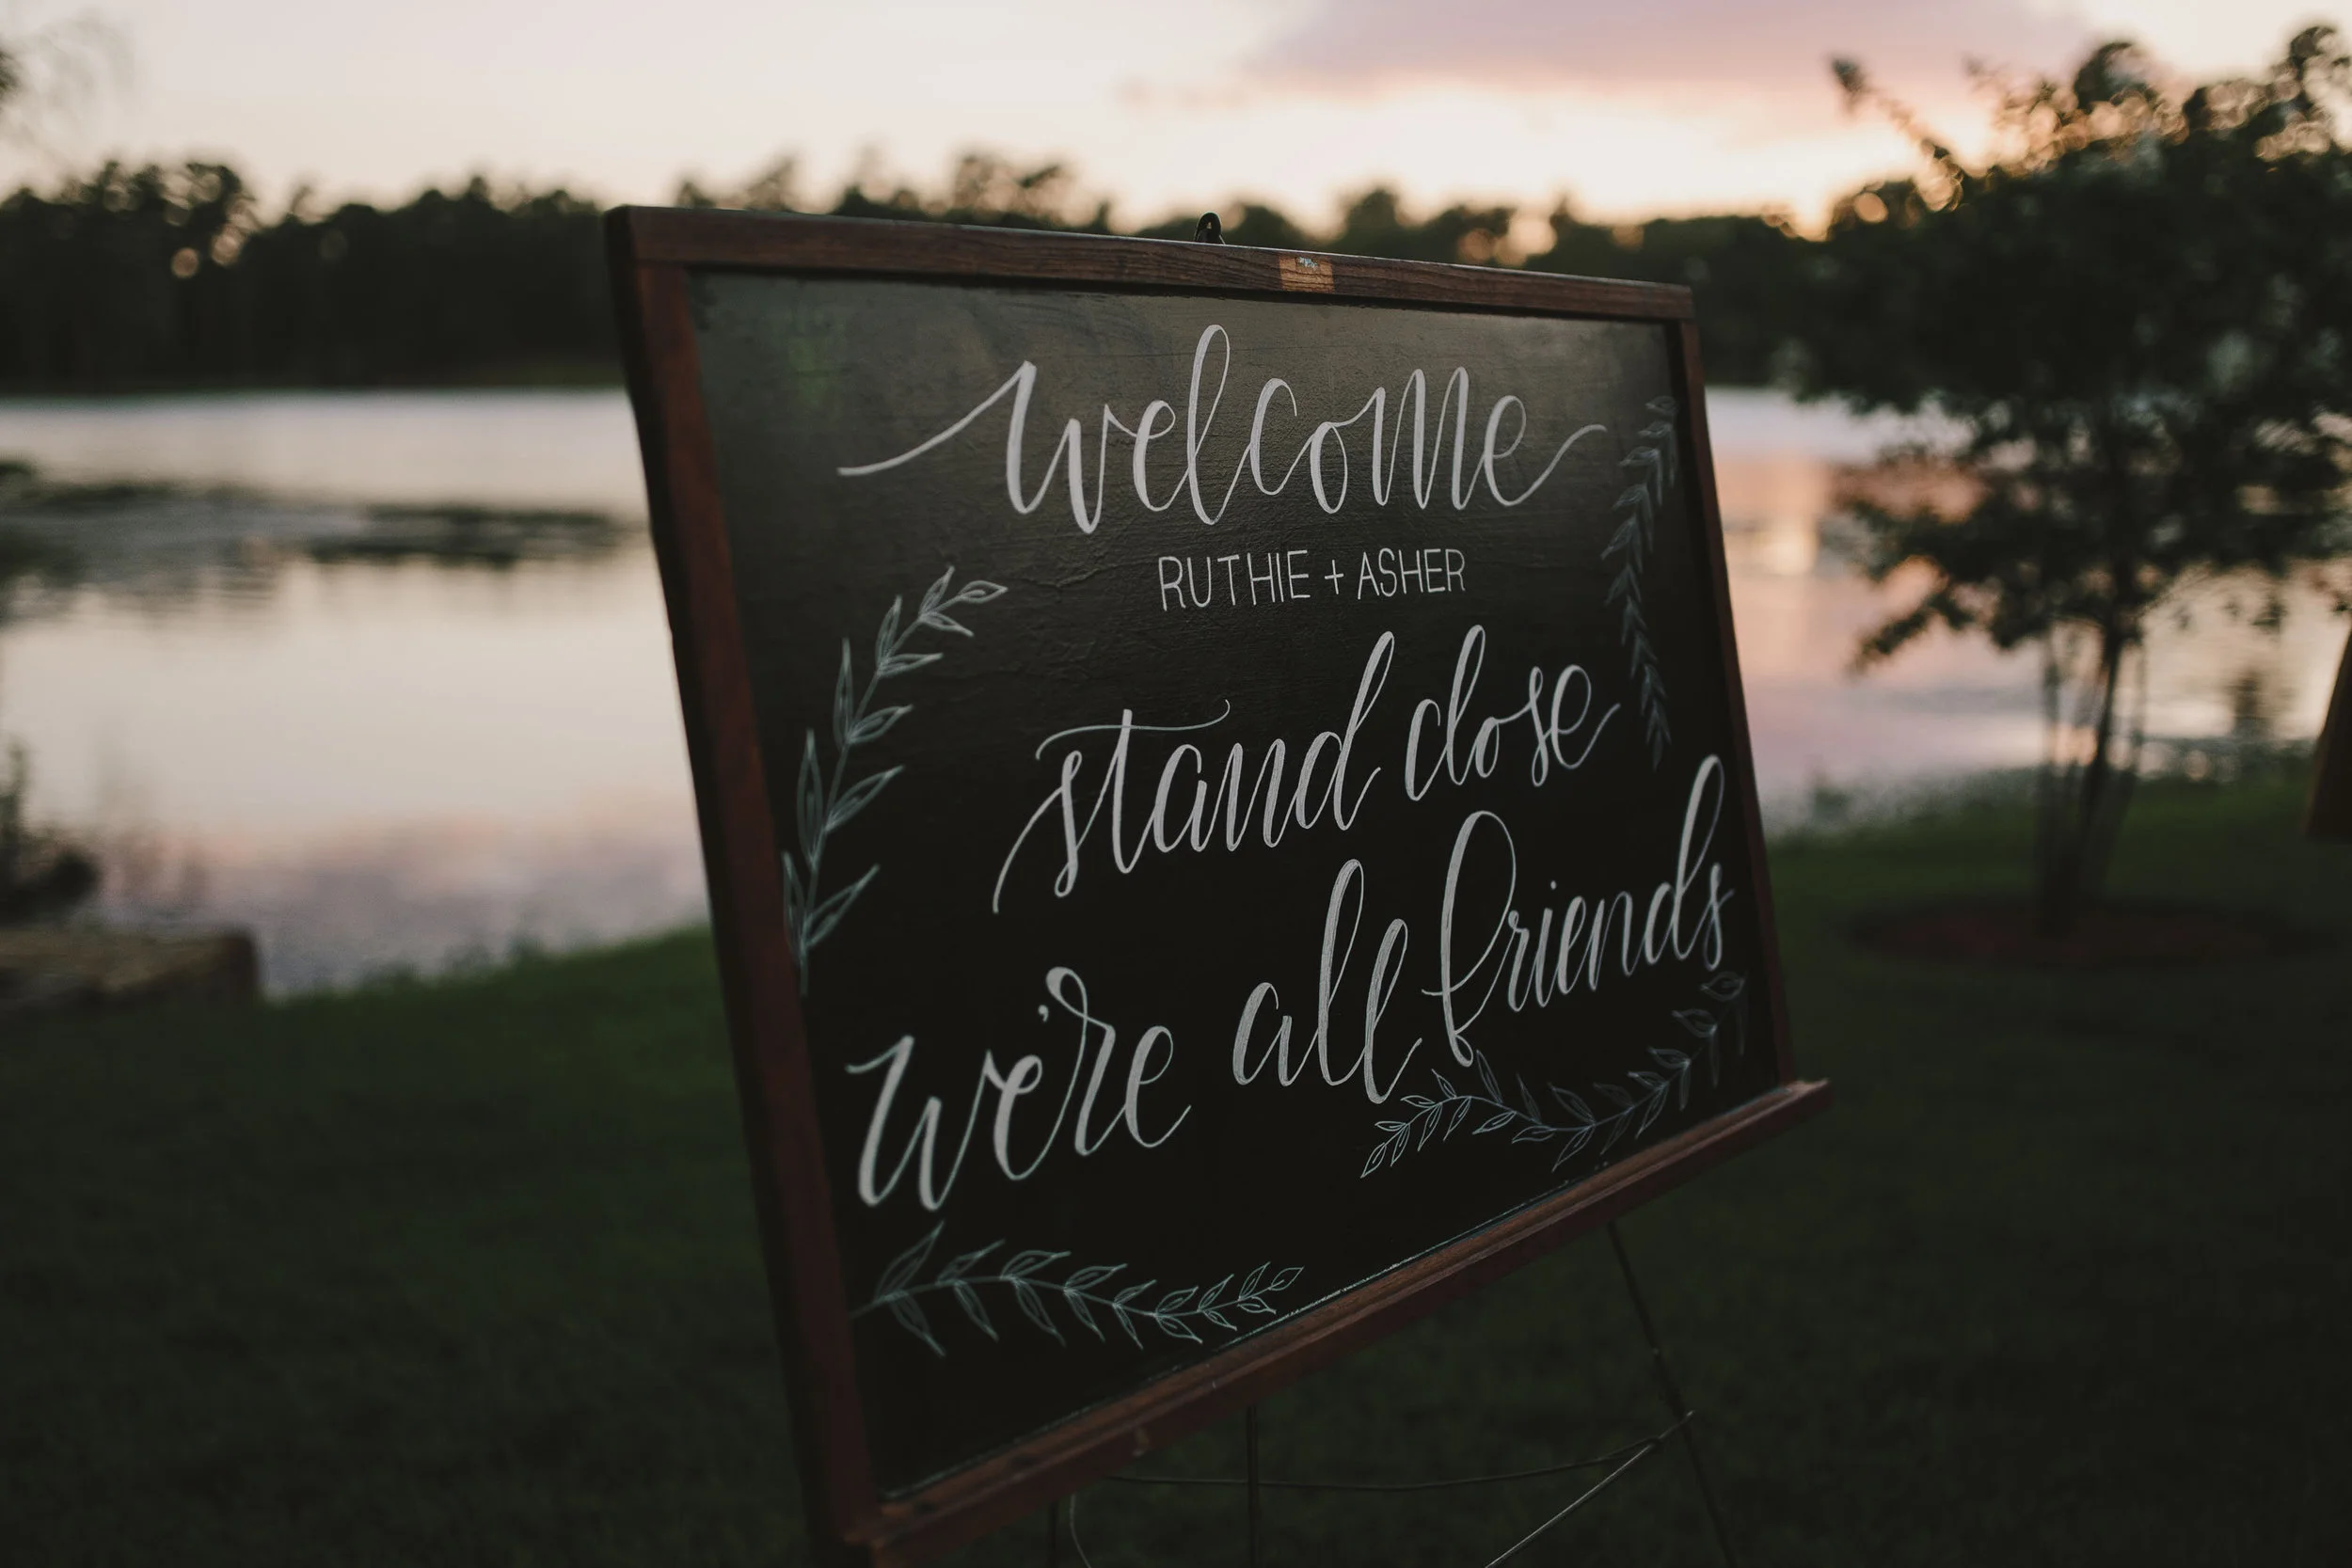 welcome
RUTHIE + ASHER
stand close
we're all friends